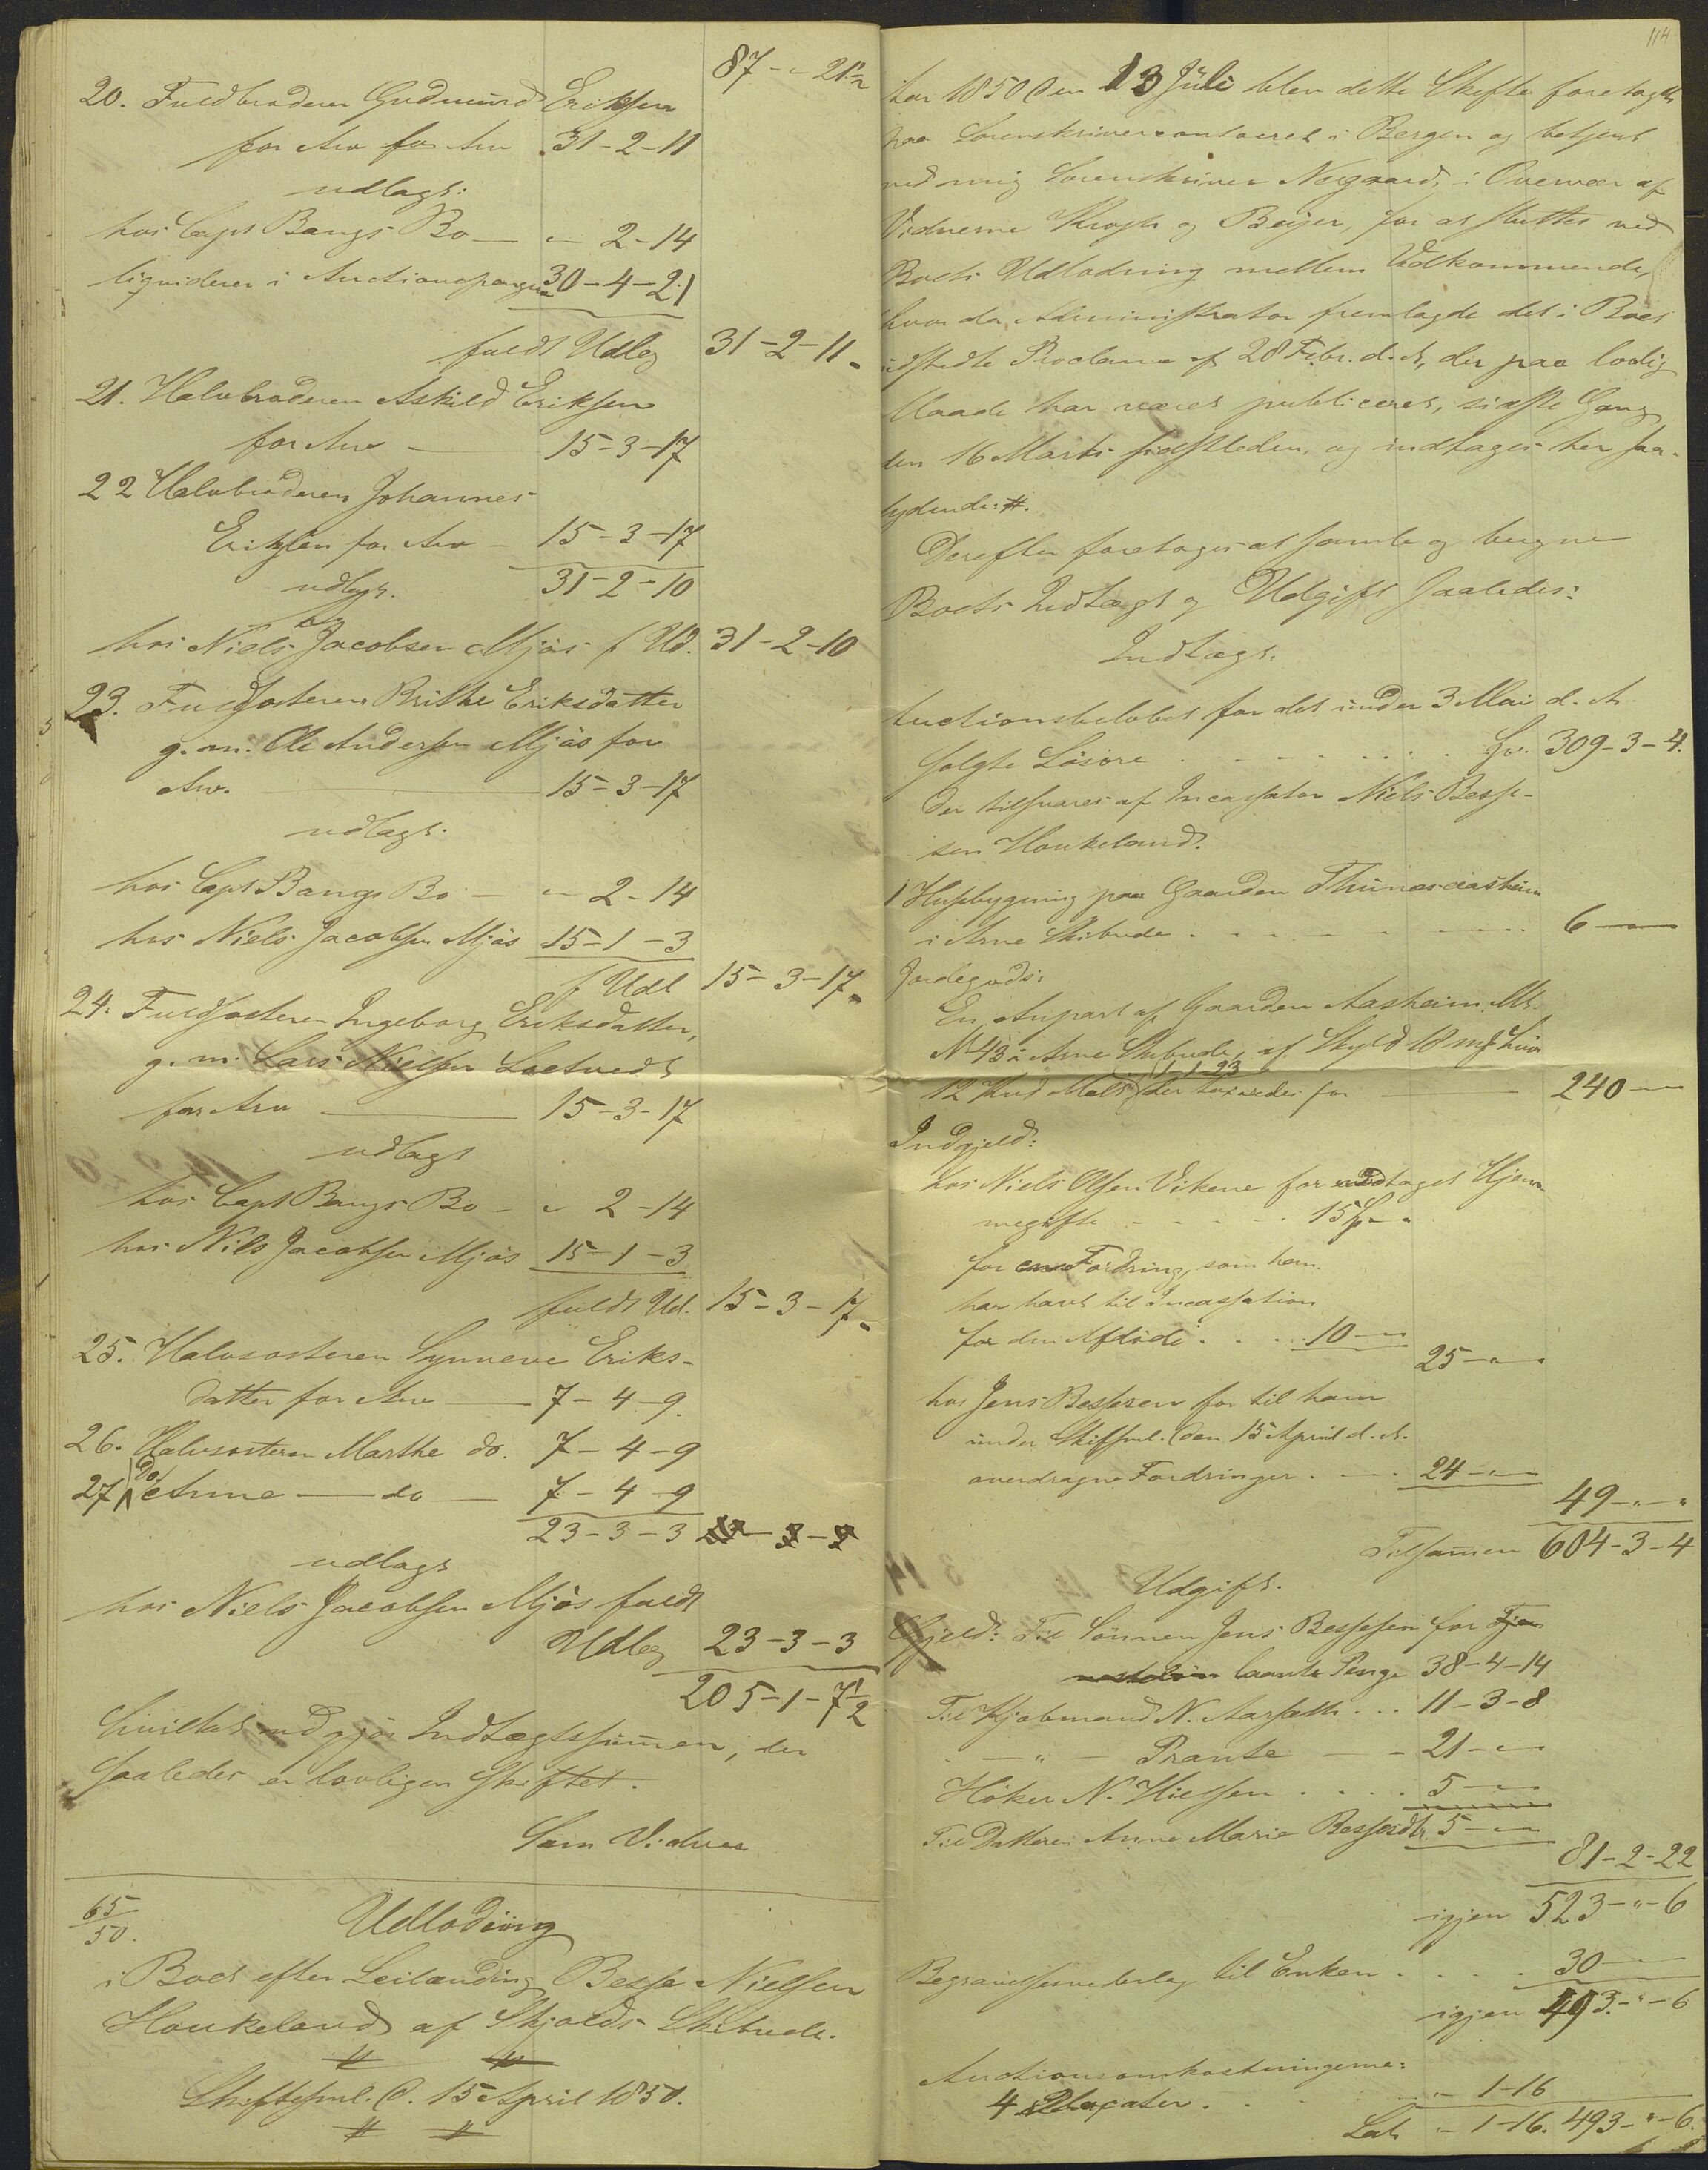 87 - " - 21½
20. Fuldbroderen Gudmund Eriksen
for Arv for Arv 31-2-11
udlagt:
hos Capt Bangs Bo — " - 2-14
liqviderer i Auctionspengene 30-4-21
fuldt Udlæg 31-2-11
21. Halvbroderen Askild Eriksen
for Arv — 15-3-17
22 Halvbroderen Johannes
Eriksen for Arv — 15-3-17
31-2-10
udlagt.
hos Niels Jacobsen Mjøs f Ud. 31-2-10
23. Fuldsøsteren Brithe Eriksdatter
g. m. Ole Andersen Mjøs for
Arv. — 15-3-17
udlagt.
hos Capt Bangs Bo — " - 2-14
hos Niels Jacobsen Mjøs 15-1-3
f Udl 15-3-17
24. Fuldsøsteren Ingeborg Eriksdatter,
g. m. Lars Nielsen Loetvedt
for Arv — 15-3-17
udlagt
hos Capt Bangs Bo — " 2-14
hos Nils Jacobsen Mjøs 15-1-3
fuldt Ud. 15-3-17
25. Halvsøsteren Synneve Eriks-
datter for Arv — 7-4-9.
26. Halvsøsteren Marthe do. 7-4-9
27 Do Anne — do — 7-4-9
23-3-3
udlagt
hos Niels Jacobsen Mjøs fuldt
Udlæg 23-3-3
205-1-7½
hvilket udgjør Indtægtssummen, der
saaledes er lovligen skiftet.
Som Vidner
65/50.
Udlodning
i Boet efter Leilænding Besse Nielsen
Houkeland af Skjolds Skibrede.
Skiftesml. d. 15 April 1850.
114
Aar 1850 den 13 Juli blev dette Skifte foretaget
paa Sorenskrivercontoiret i Bergen og betjent
ved mig Sorenskriver Nygaard, i Overvær af
Vidnerne Krogh og Beyer, for at sluttes ved
Boets Udlodning mellem Vedkommende,
hvor da Administrator fremlagde det i Boet
udstedte Proclama af 28 Febr. d. A, der paa lovlig
Maade har været publiceret, sidste Gang
den 16 Marts sidstleden, og indtages her saa-
lydende: #.
Derefter foretoges at samle og beregne
Boets Indtægt og Udgift saaledes:
Indtægt.
Auctionsbeløbet for det under 3 Mai d. A.
solgte Løsøre . . . . Spd. 309-3-4.
der tilsvares af Incassator Niels Besse-
sen Houkeland.
1 Husebygning paa Gaarden
i Arne Skibrede . . . . 6 —
Jordegods:
En Anpart af Gaarden Aasheim Mt.
No 43 i Arne Skibrede, af Skyld 18 mk Smør
12 Knd Malt 1-1-23 der taxeredes for — 240 —
Indgjeld:
hos Niels Olsen Vikene for modtaget Hjem-
megifte . . . . 15 Spd "
for en Fordring, som han
har havt til Incassation
for den Afdøde . . . 10 —
25 — " — "
hos Jens Bessesen for til ham
under Skiftsml. den 15 April d. A.
overdragne Fordringer . . . 24 — " —
49 — " — "
Tilsammen 604-3-4
Udgift.
Gjeld: Til Sønnen Jens Bessesen for
laante Penge 38-4-14
Til Kjøbmand N. Aarsæth . . . 11-3-8
— " — Prante — 21 — "
Høker N. Nielsen . . . . 5 —
Til Datteren Anne Marie Bessesdtr. 5 —
81-2-22
igjen 523 - " - 6
Begravelsesvederlag til Enken . . . 30 —
igjen 493 - " - 6
Auctionsomkostningerne:
4 Placater . . . " 1-16
Lat. " - 1-16. 493 - " - 6.